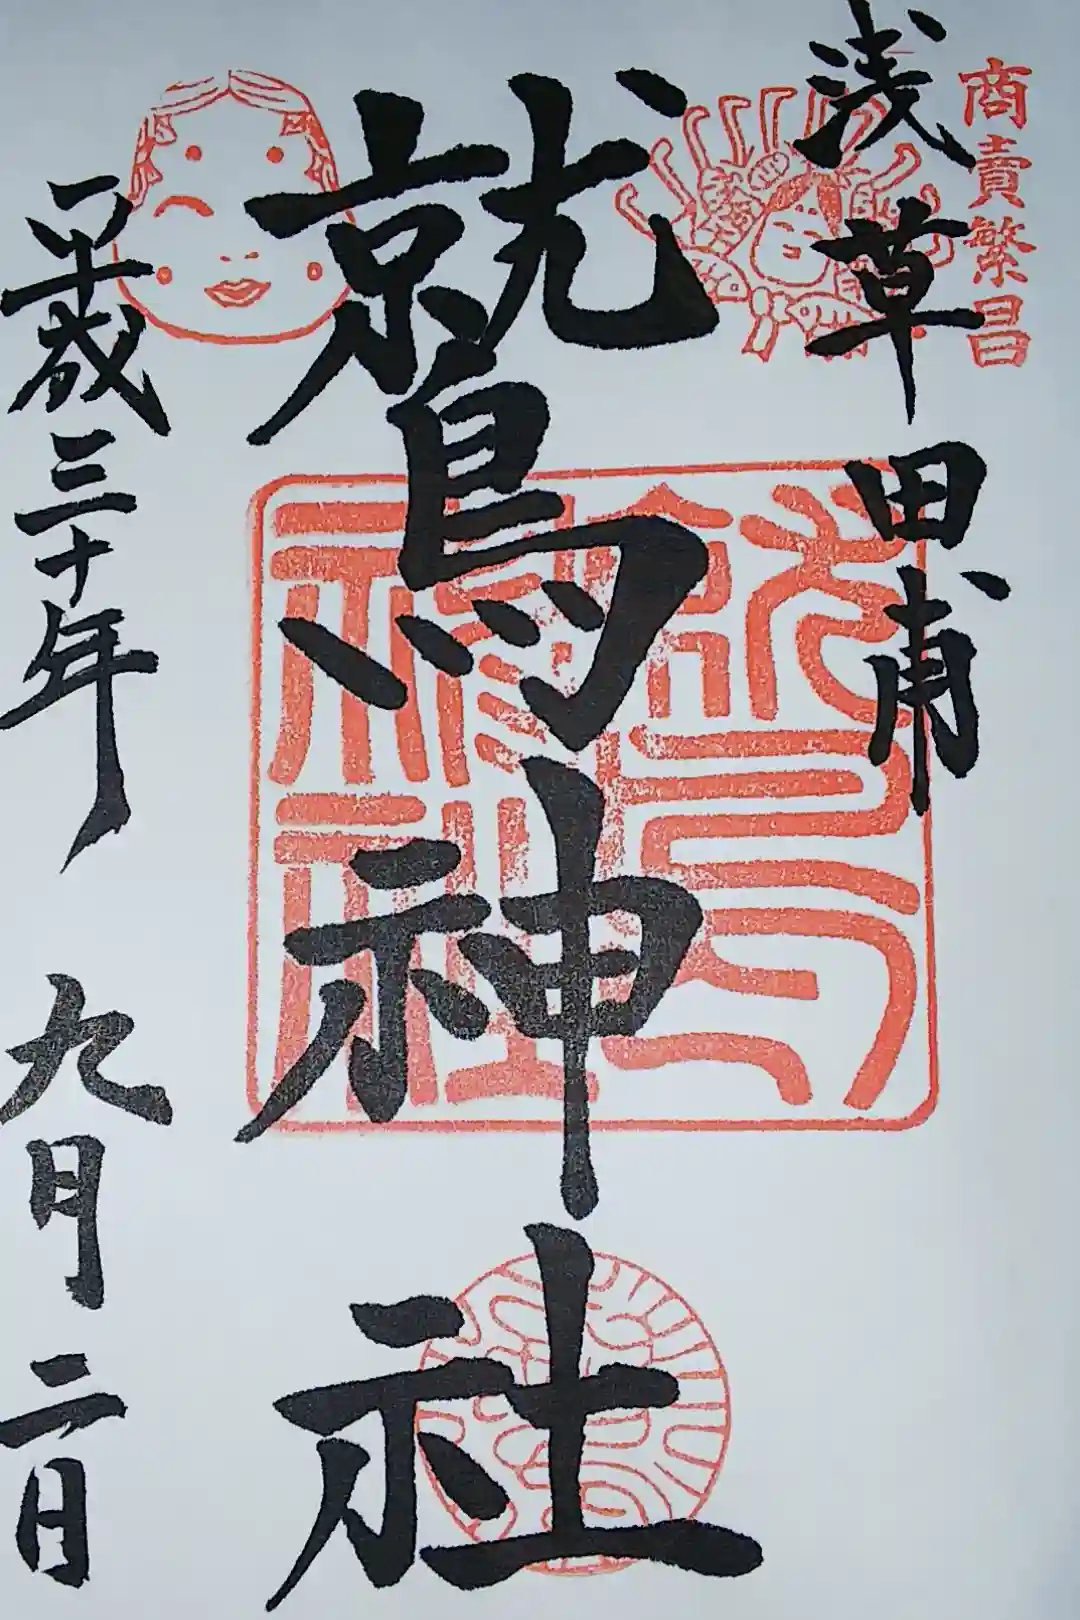 商賣繁昌
浅草田甫
鷲神社
鷲神社
平成三十年 九月二日